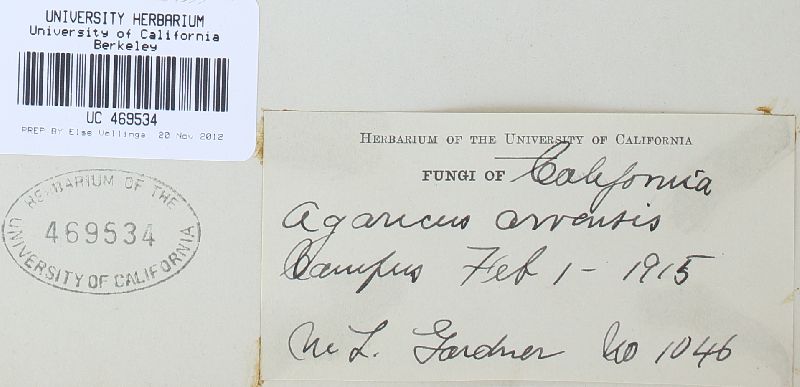 UNIVERSITY HERBARIUM
University of California
Berkeley
UC 469534
PREP BY Else Vellinga, 20 Nov 2012
HERBARIUM OF THE
469534
UNIVERSITY OF CALIFORNIA
HERBARIUM OF THE UNIVERSITY OF CALIFORNIA
FUNGI OF California
Agaricus arvensis
Campus Feb 1 - 1915
N L. Gardner No 1046